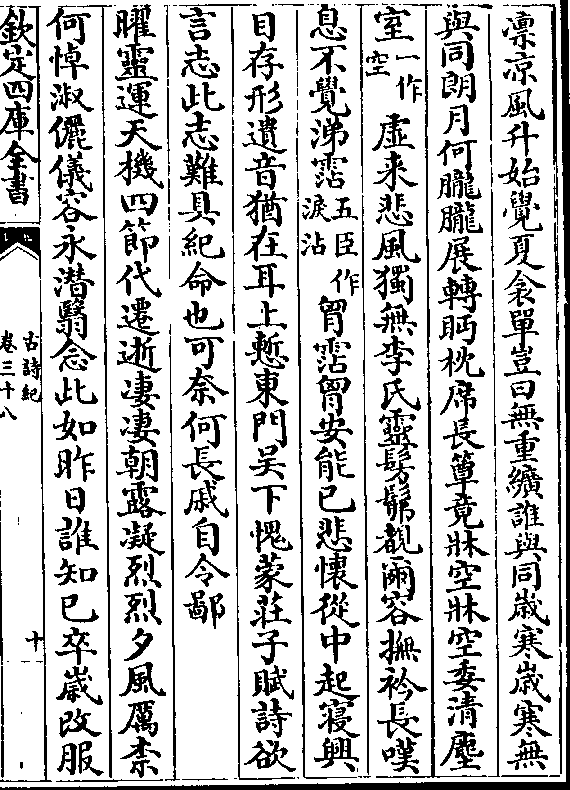 凛凉風升始覺夏衾單豈曰無重纊誰與同歲寒歲寒無
與同朗月何朧朧展轉眄枕席長簟竟牀空牀空委清塵
室一作空虛来悲風獨無李氏靈髣髴覩爾容撫衿長嘆
息不覺涕霑五臣作淚沾胷霑胷安能已悲懷從中起寢興
目存形遺音猶在耳上慙東門吴下愧蒙莊子賦詩欲
言志此志難具紀命也可奈何長戚自令鄙
曜靈運天機四節代遷逝凄凄朝露凝烈烈夕風厲柰
何悼淑儷儀容永潛翳念此如昨日誰知已卒歲改服
欽定四庫全書
古詩紀
卷三十八
十